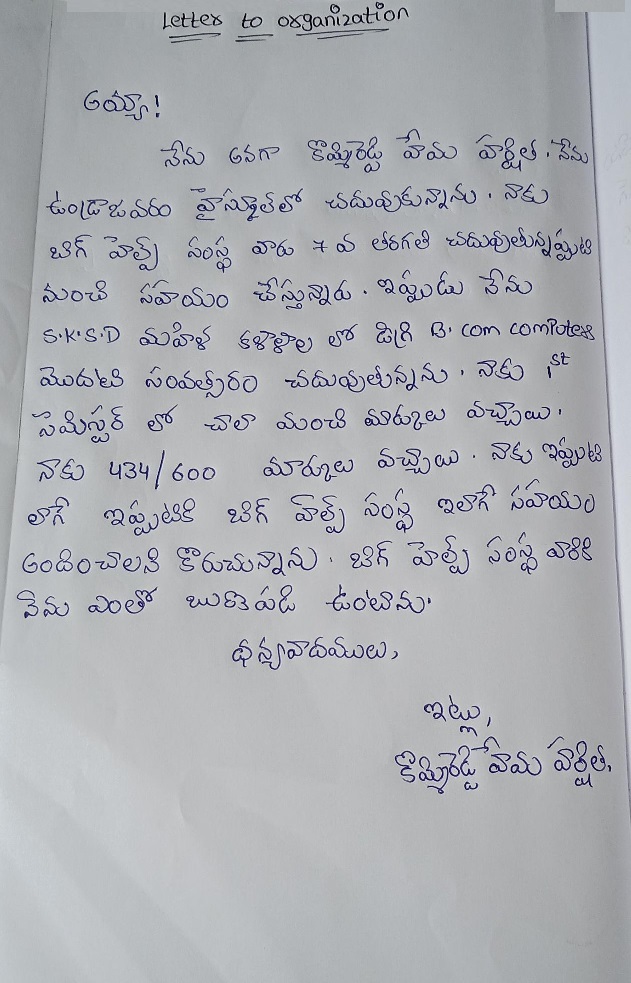 Letter to organization
అయ్యా!
నేను అనగా కొమ్మిరెడ్డి హేమ హర్షిత. నేను
ఉండ్రాజవరం హైస్కూల్‌లో చదువుకున్నాను. నాకు
బిగ్ హెల్ప్ సంస్థ వారు 7 వ తరగతి చదువుతున్నప్పటి
నుంచి సహయం చేస్తున్నారు. ఇప్పుడు నేను
S.K.S.D మహిళ కళాశాల లో డిగ్రి B.com computers
మొదటి సంవత్సరం చదువుతున్నను. నాకు 1st
సెమిస్టర్ లో చాలా మంచి మార్కులు వచ్చాయి.
నాకు 434/600 మార్కులు వచ్చాయి. నాకు ఇప్పటి
లాగే ఇప్పటికి బిగ్ హెల్ప్ సంస్థ ఇలాగే సహయం
అందించాలని కొరుచున్నాను. బిగ్ హెల్ప్ సంస్థ వారికి
నేను ఎంతో బుణపడి ఉంటాను.
ధన్యవాదములు,
ఇట్లు,
కొమ్మిరెడ్డి హేమ హర్షిత.